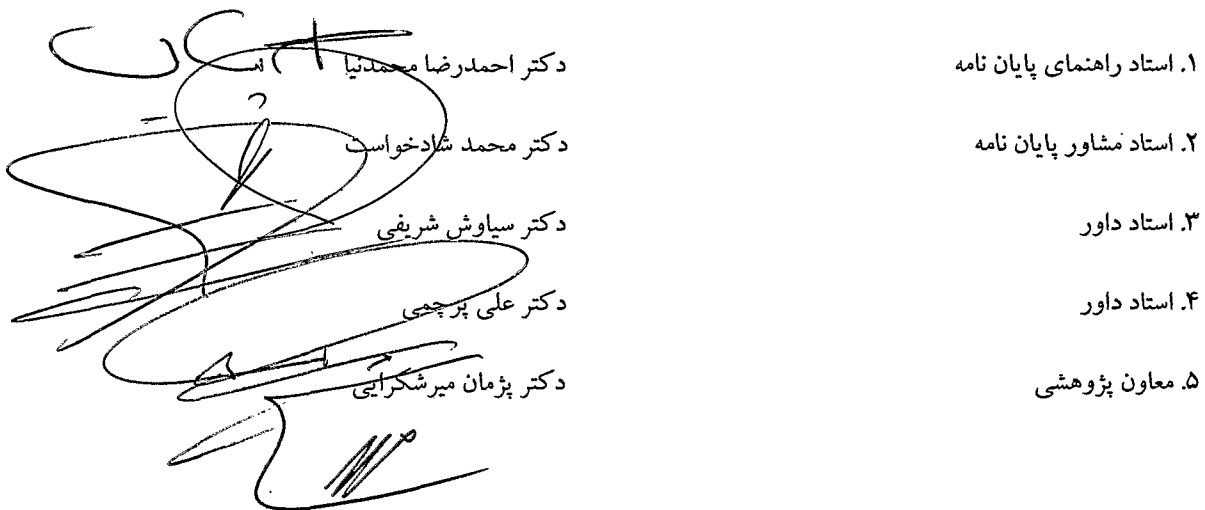 ۱. استاد راهنمای پایان نامه دکتر احمدرضا محمدنیا
۲. استاد مشاور پایان نامه دکتر محمد شادخواست
۳. استاد داور دکتر سیاوش شریفی
۴. استاد داور دکتر علی پرچمی
۵. معاون پژوهشی دکتر پژمان میرشکرایی